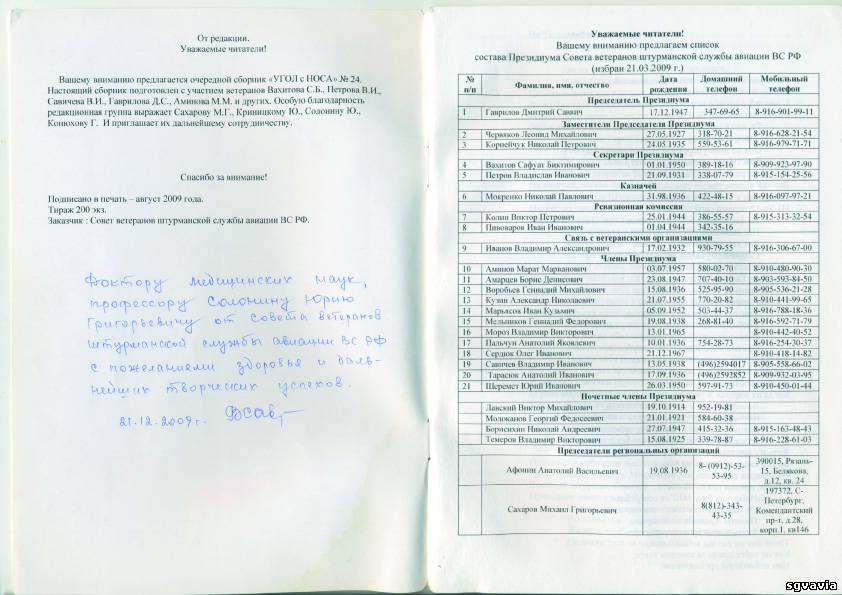 От редакции.
Уважаемые читатели!
Вашему вниманию предлагается очередной сборник «УГОЛ с НОСА» № 24.
Настоящий сборник подготовлен с участием ветеранов Вахитова С.Б., Петрова В.И.,
Савичева В.И., Гаврилова Д.С., Аминова М.М. и других. Особую благодарность
редакционная группа выражает Сахарову М.Г., Криницкому Ю., Солонину Ю.,
Конюхову Г. И приглашает их дальнейшему сотрудничеству.
Спасибо за внимание!
Подписано в печать – август 2009 года.
Тираж 200 экз.
Заказчик : Совет ветеранов штурманской службы авиации ВС РФ.
Доктору медицинских наук,
профессору Солонину Юрию
Григорьевичу от совета ветеранов
штурманской службы авиации ВС РФ
с пожеланиями здоровья и даль-
нейших творческих успехов.
21.12.2009г.
Уважаемые читатели!
Вашему вниманию предлагаем список
состава Президиума Совета ветеранов штурманской службы авиации ВС РФ
(избран 21.03.2009 г.)
№ п/п Фамилия, имя, отчество Дата рождения Домашний телефон Мобильный телефон
Председатель Президиума
1 Гаврилов Дмитрий Саввич 17.12.1947 347-69-65 8-916-901-99-11
Заместители Председателя Президиума
2 Червяков Леонид Михайлович 27.05.1927 318-70-21 8-916-628-21-54
3 Корнейчук Николай Петрович 24.05.1935 559-53-61 8-916-979-71-71
Секретари Президиума
4 Вахитов Сафуат Биктимирович 01.01.1950 389-18-16 8-909-923-97-90
5 Петров Владислав Иванович 21.09.1931 338-07-79 8-915-154-25-56
Казначей
6 Мокренко Николай Павлович 31.98.1936 422-48-15 8-916-097-97-21
Ревизионная комиссия
7 Колин Виктор Петрович 25.01.1944 386-55-57 8-915-313-32-54
8 Пивоваров Иван Иванович 01.04.1944 342-35-16
Связь с ветеранскими организациями
9 Иванов Владимир Александрович 17.02.1932 930-79-55 8-916-306-67-00
Члены Президиума
10 Аминов Марат Марванович 03.07.1957 580-02-70 8-910-480-90-30
11 Амарцев Борис Денисович 23.08.1947 707-40-10 8-903-593-84-50
12 Воробьев Геннадий Михайлович 15.08.1936 525-95-90 8-905-536-21-28
13 Кузин Александр Николаевич 21.07.1955 770-20-82 8-910-441-99-65
14 Марьясов Иван Кузьмич 05.09.1952 503-44-37 8-916-788-18-36
15 Мельников Геннадий Федорович 19.08.1938 268-81-40 8-916-592-71-79
16 Мороз Владимир Викторович 13.01.1965 8-910-442-40-52
17 Пальчун Анатолий Яковлевич 10.01.1936 754-28-73 8-916-254-30-37
18 Сердюк Олег Иванович 21.12.1967 8-910-418-14-82
19 Савичев Владимир Иванович 13.05.1938 (496)2594017 8-905-558-66-02
20 Тарасюк Анатолий Иванович 17.09.1936 (496)2592852 8-909-932-03-95
21 Шеремет Юрий Иванович 26.03.1950 597-91-73 8-910-450-01-44
Почетные члены Президиума
Лавский Виктор Михайлович 19.10.1914 952-19-81
Молоканов Георгий Федосеевич 21.01.1921 584-60-38
Борисихин Николай Андреевич 27.07.1947 415-32-36 8-915-163-48-43
Темеров Владимир Викторович 15.08.1925 339-78-87 8-916-228-61-03
Председатели региональных организаций
Афонин Анатолий Васильевич 19.08.1936 8- (0912)-53-53-95 390015, Рязань-15, Белякова, д.12, кв. 24
Сахаров Михаил Григорьевич 8(812)-343-43-35 197372, С-Петербург, Комендантский пр-т, д.28, корп.1, кв146
sgvavia